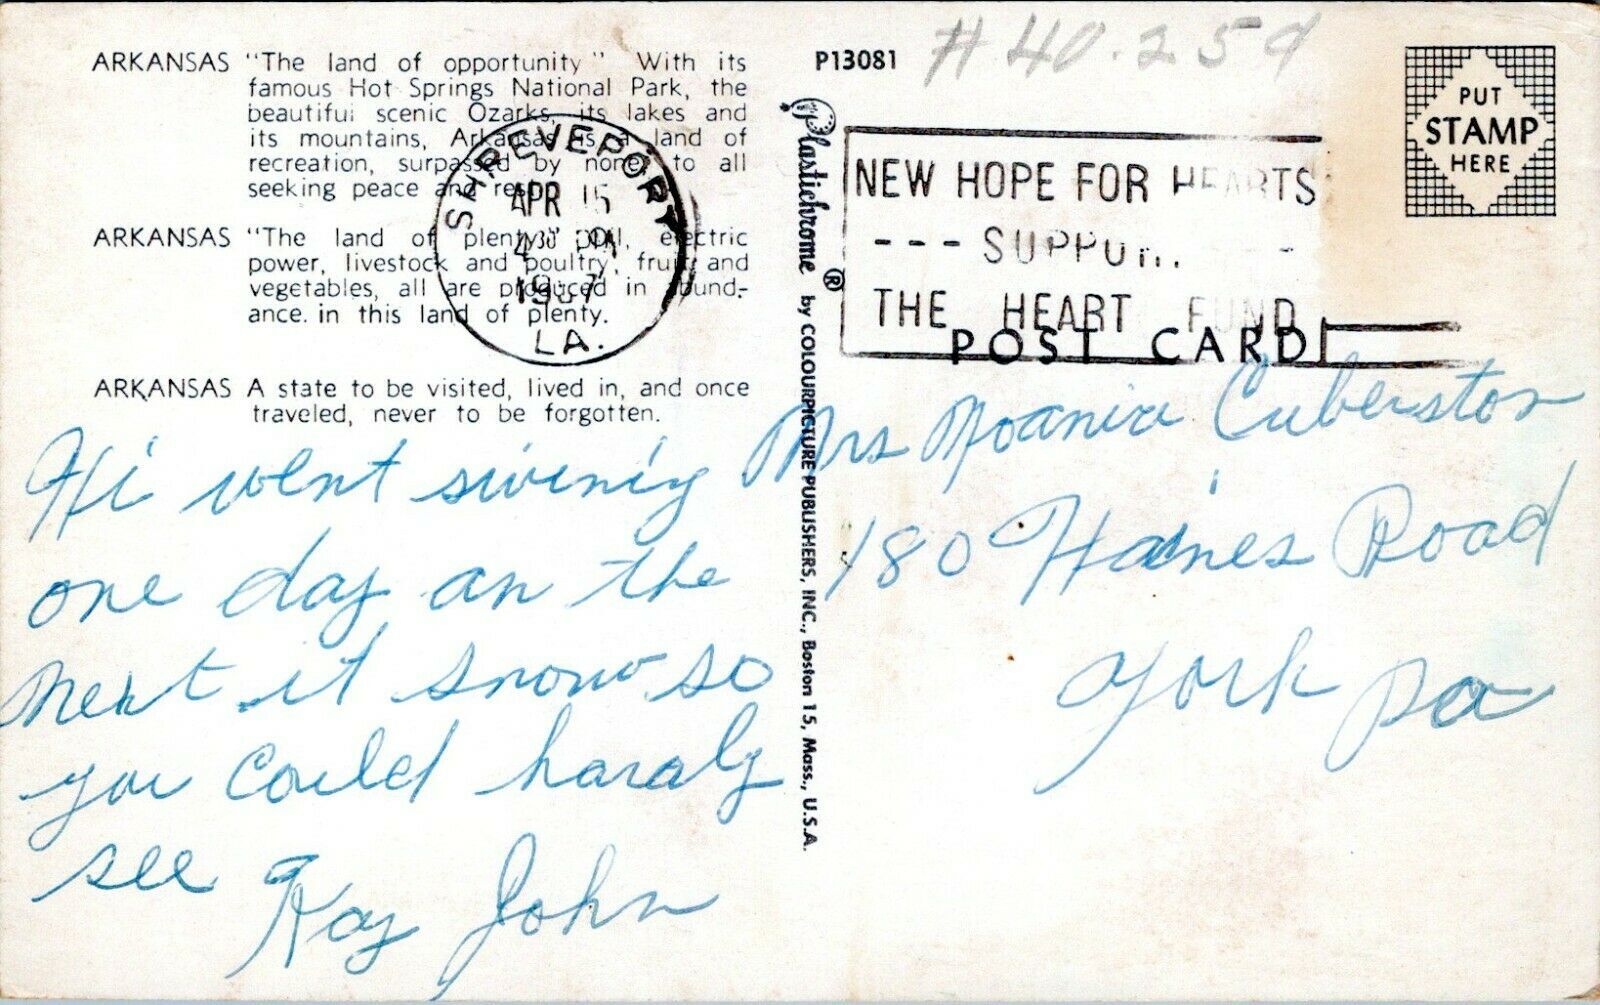 ARKANSAS "The land of opportunity" With its
famous Hot Springs National Park, the
beautiful scenic Ozarks, its lakes and
its mountains, Arkansas is a land of
recreation, surpassed by none, to all
seeking peace and rest.
ARKANSAS "The land of plenty" oil, electric
power, livestock and poultry, fruit and
vegetables, all are produced in abund-
ance. in this land of plenty.
ARKANSAS A state to be visited, lived in, and once
traveled, never to be forgotten.
Hi went swiming
one day an the
next it snow so
you could haraly
see
Kay John
SHREVEPORT
APR 15
4 30 PM
1967
LA.
P13081
Plastichrome ® by COLOURPICTURE PUBLISHERS, INC., Boston 15, Mass., U.S.A.
# 40.259
NEW HOPE FOR HEARTS
--- SUPPORT ---
THE HEART FUND
PUT
STAMP
HERE
POST CARD
Mrs Cuberston
180 Haines Road
York Pa